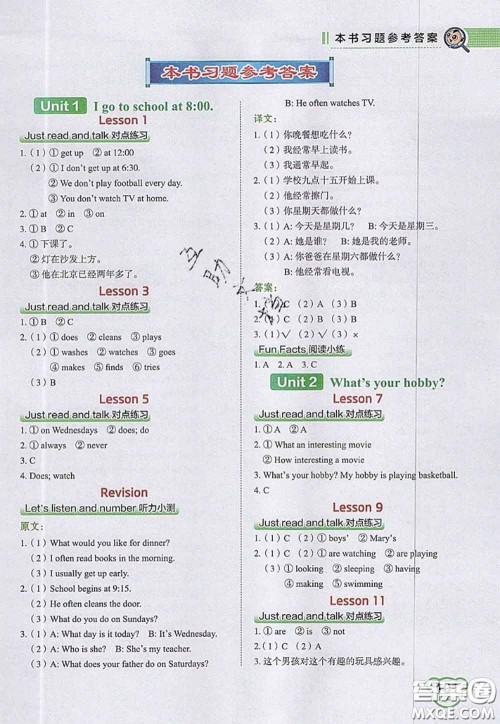 本书习题参考答案
本书习题参考答案
Unit 1 I go to school at 8:00.
Lesson 1
Just read and talk 对点练习
1.（1）① get up ② at 12:00
（2）① I don't get up at 6:30.
② We don't play football every day.
③ You don't watch TV at home.
2. ① at ② in ③ on
4. ① 下课了。
② 灯在沙发上方。
③ 他在北京已经两年多了。
Lesson 3
Just read and talk 对点练习
1. ① B ② C
2.（1）① does ② cleans ③ plays
（2）① washes ② wants ③ goes
④ makes ⑤ finds ⑥ tries
（3）B
Lesson 5
Just read and talk 对点练习
1. ① on Wednesdays ② does; do
2. ① always ② never
3. C
4. Does; watch
Revision
Let's listen and number 听力小测
原文：
1.（1）What would you like for dinner?
（2）I often read books in the morning.
（3）I usually get up early.
2.（1）School begins at 9:15.
（2）He often cleans the door.
（3）What do you do on Sundays?
3.（1）A: What day is it today? B: It's Wednesday.
（2）A: Who is she? B: She's my teacher.
（3）A: What does your father do on Saturdays?
B: He often watches TV.
译文：
1.（1）你晚餐想吃什么？
（2）我经常早上读书。
（3）我通常早起。
2.（1）学校九点十五开始上课。
（2）他经常擦门。
（3）你星期天都做什么？
3.（1）A: 今天是星期几？ B: 今天是星期三。
（2）A: 她是谁？ B: 她是我的老师。
（3）A: 你爸爸在星期六都做什么？
B: 他经常看电视。
答案：
1.（1）C （2）A （3）B
2.（1）C （2）B （3）C
3.（1）√ （2）√ （3）×
Fun Facts 阅读小练
1. A 2. A 3. C
Unit 2 What's your hobby?
Lesson 7
Just read and talk 对点练习
1. ① A ② A
2. ① What an interesting movie
② How interesting the movie is
3. What's your hobby? My hobby is playing basketball.
4. C
Lesson 9
Just read and talk 对点练习
1.（1）C （2）① boys' ② Mary's
2.（1）C （2）① am watching ② are playing
（3）① looking ② sleeping ③ having
④ making ⑤ swimming
Lesson 11
Just read and talk 对点练习
1. ① are ② is ③ is
2. ① not ② isn't
3. 这个男孩对这个有趣的玩具感兴趣。
答案圈
MXQE.COM